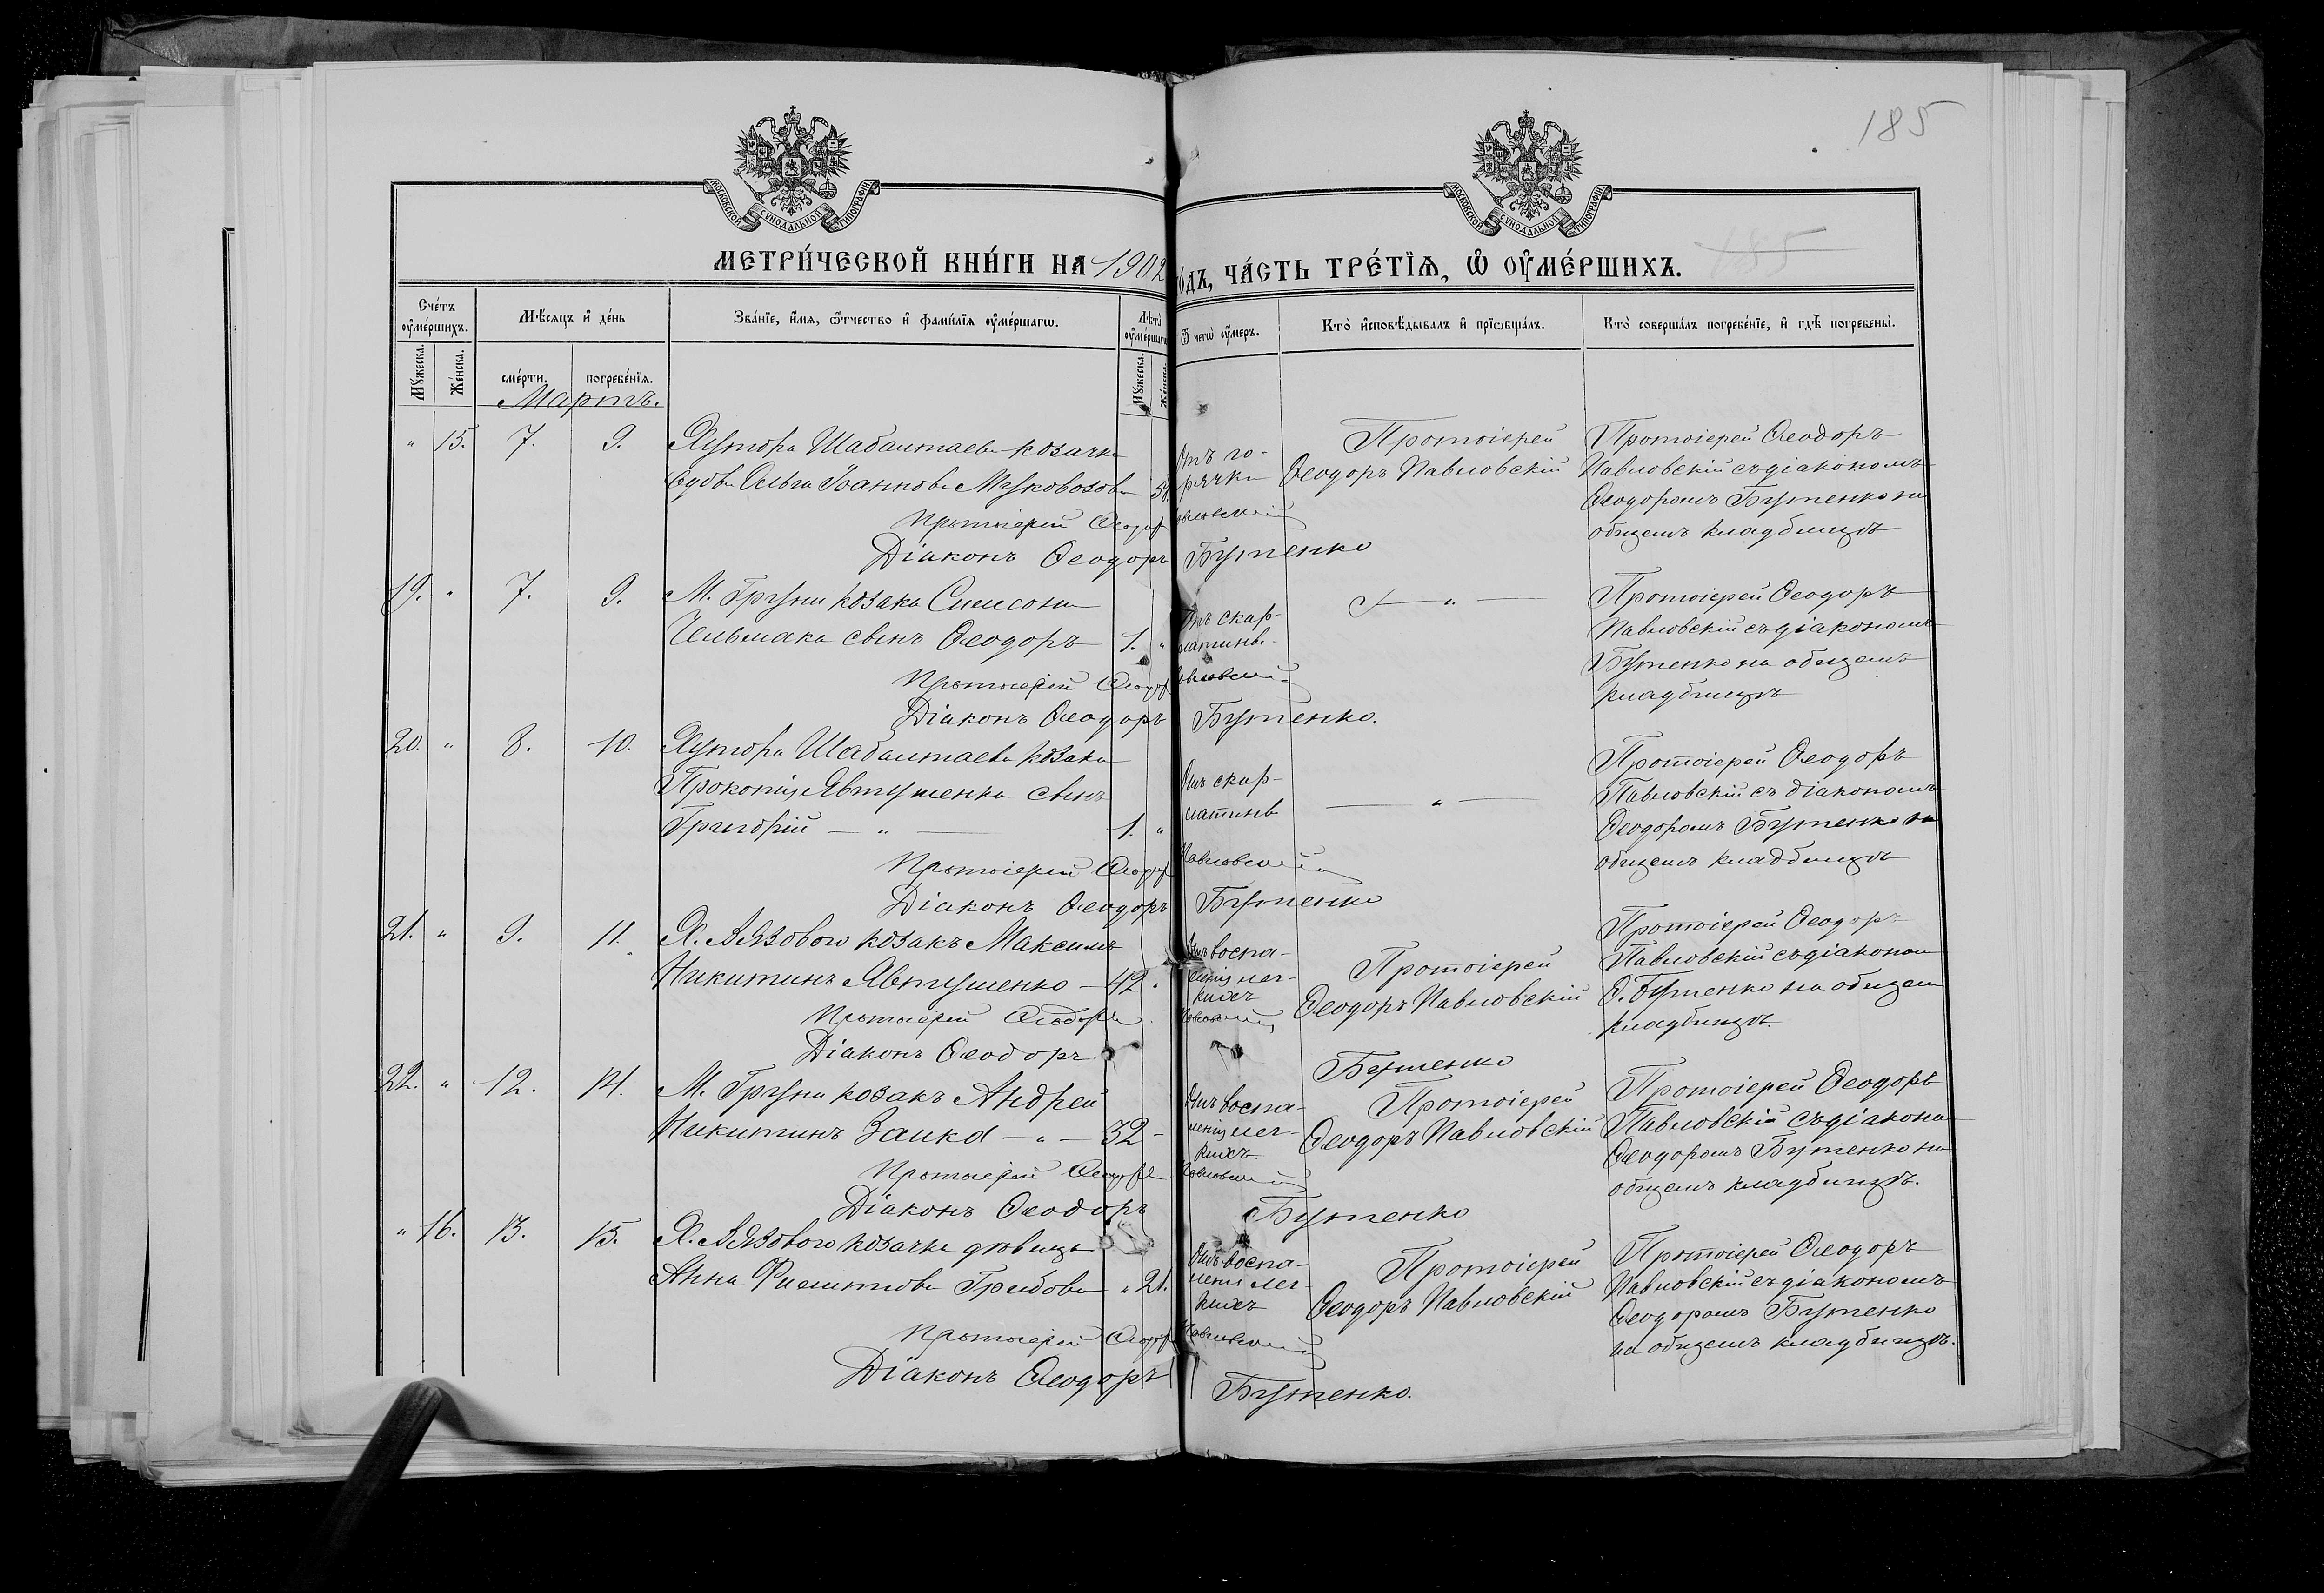 185
МОСКОВСКОЙ СѴНОДАЛЬНОЙ ТИПОГРАФІИ
МОСКОВСКОЙ СѴНОДАЛЬНОЙ ТИПОГРАФІИ
МЕТРИ́ЧЕСКОЙ КНИ́ГИ НА 1902
ГО́ДЪ, ЧА́СТЬ ТРЕ́ТІѦ, Ѡ ОУ҆МЕ́РШИХЪ.
185
Сче́тъ оу҆ме́ршихъ.
Мѣсѧцъ и҆ де́нь
Зва́нїе, и҆́мѧ, ѻ҆́тчество и҆ фами́лїѧ оу҆ме́ршагѡ.
Лѣта̀ оу҆ме́ршагѡ
Ѿ чегѡ̀ оу҆́меръ.
Кто̀ и҆сповѣ́дывалъ и҆ прїѡбща́лъ.
Кто̀ соверша́лъ погребе́нїе, и҆ гдѣ̀ погребены̀.
Мꙋ́жеска.
Же́нска.
сме́рти.
погребе́нїѧ.
Мꙋ́жеска.
Же́нска.
Мартъ.
" 15. 7. 9. Хутора Шабалтаева козачка
вдова Ольга Іоаннова
Отъ го-
рячки
Протоіерей
Ѳеодоръ Павловскій
Протоіерей Ѳеодоръ
Павловскій съ діакономъ
Ѳеодоромъ Бутенко на
общемъ кладбищѣ
Протоіерей Ѳеодоръ Павловскій
Діаконъ Ѳеодоръ Бутенко
19. " 7. 9. М. Груни козака Симеона
Чельмака сынъ Ѳеодоръ 1. "
Отъ скар-
латины.
"
Протоіерей Ѳеодоръ
Павловскій съ діакономъ
Бутенко на общемъ
кладбищѣ
Протоіерей Ѳеодоръ Павловскій
Діаконъ Ѳеодоръ Бутенко.
20. " 8. 10. Хутора Шабалтаева козака
Прокопія Явтушенка сынъ
Григорій — " — 1. "
Отъ скар-
латины
— " —
Протоіерей Ѳеодоръ
Павловскій съ діакономъ
Ѳеодоромъ Бутенко на
общемъ кладбищѣ
Протоіерей Ѳеодоръ Павловскій
Діаконъ Ѳеодоръ Бутенко
21. " 9. 11. Х. Вязового козакъ Максимъ
Никитинъ Явтушенко — 42 "
Отъ воспа-
ленія лег-
кихъ
Протоіерей
Ѳеодоръ Павловскій
Протоіерей Ѳеодоръ
Павловскій съ діаконом
Ѳ. Бутенко на общем
кладбищѣ.
Протоіерей Ѳеодоръ Павловскій
Діаконъ Ѳеодоръ Бутенко
22. " 12. 14. М. Груни козакъ Андрей
Никитинъ Заика — " — 32 —
Отъ воспа-
ленія лег-
кихъ.
Протоіерей
Ѳеодоръ Павловскій
Протоіерей Ѳеодоръ
Павловскій съ діакона
Ѳеодоромъ Бутенко на
общемъ кладбищѣ.
Протоіерей Ѳеодоръ Павловскій
Діаконъ Ѳеодоръ Бутенко
" 16. 13. 15. Х. Вязового козачка дѣвица
Анна Филиппова Грибова " 21.
Отъ воспа-
ленія лег-
кихъ
Протоіерей
Ѳеодоръ Павловскій
Протоіерей Ѳеодоръ
Павловскій съ діакономъ
Ѳеодоромъ Бутенко
на общемъ кладбищѣ.
Протоіерей Ѳеодоръ Павловскій
Діаконъ Ѳеодоръ Бутенко.